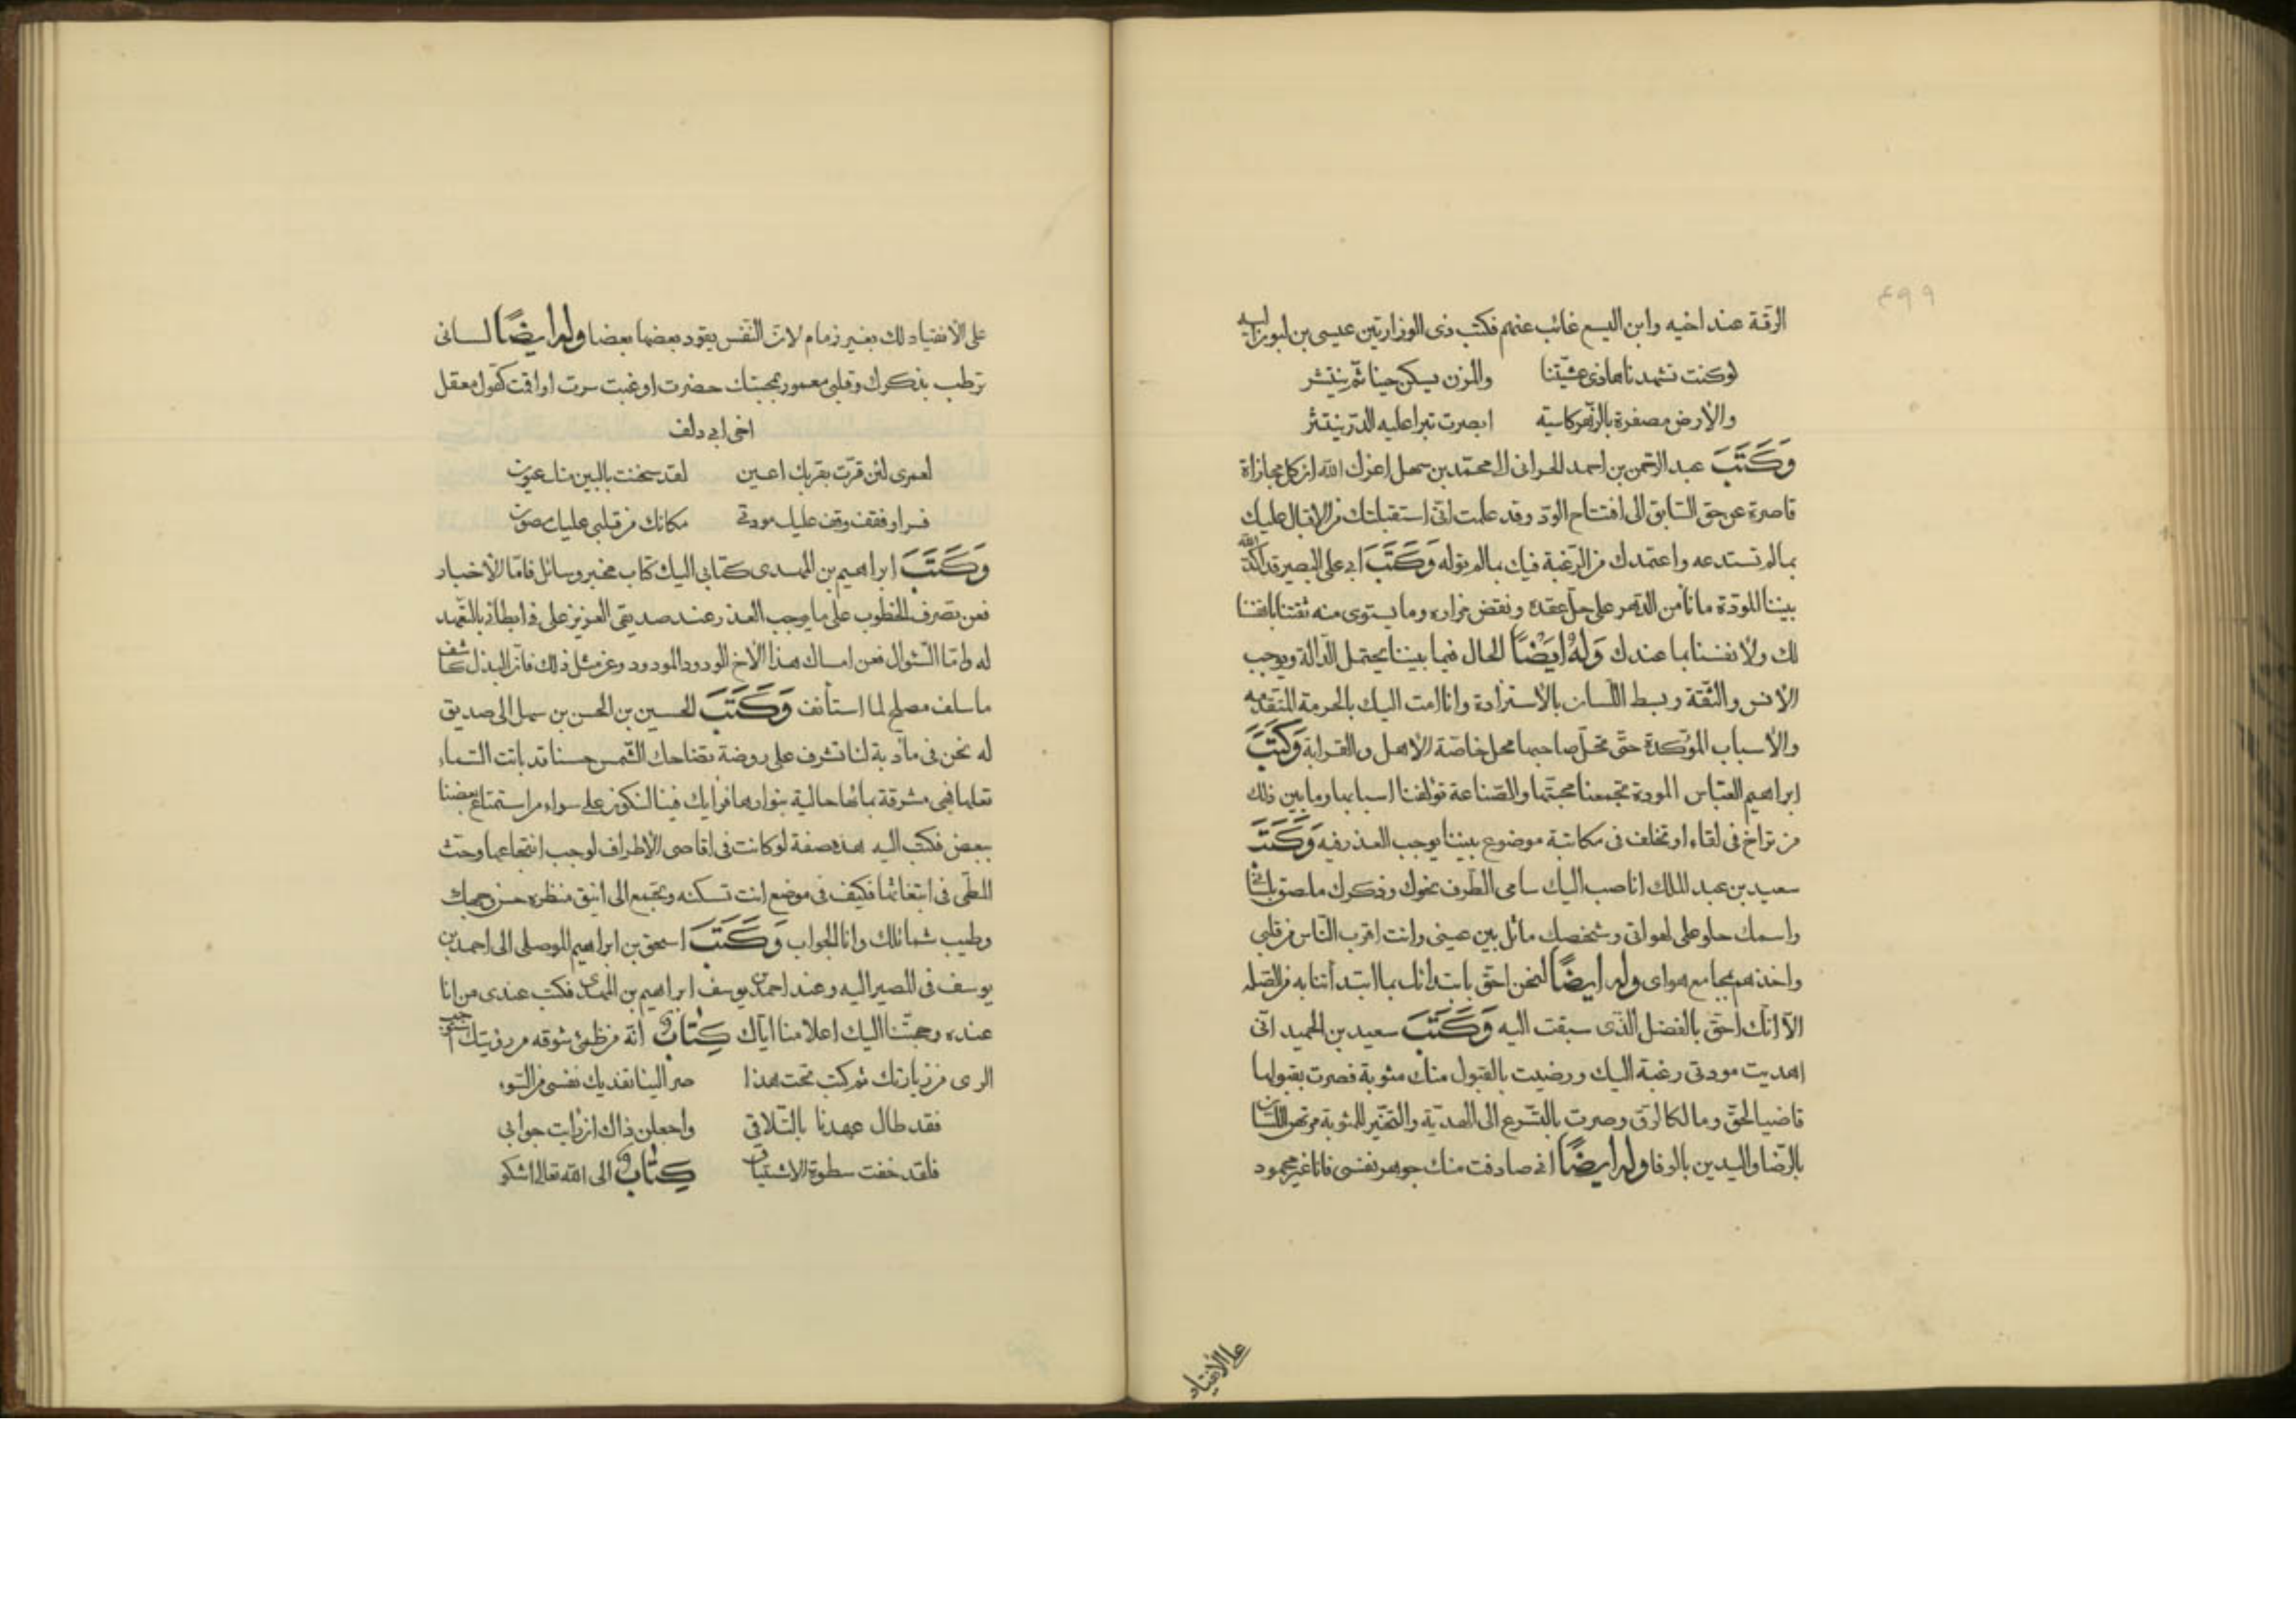 ٤٩٩
الرقة عند اخيه وابن اليسع غائب عنهم فكتب ذى الوزارتين عيسى بن لبون اليه
لو كنت تشهد يا هذا عشيتنا والمزن يسكن حينا ثم ينتثر
والأرض مصفرة بالزهر كاسية ابصرت تبرا عليه الدر ينتثر
وَكَتَبَ عبد الرحمن بن احمد الحرانى الى محمد بن سهل اعزك الله ان كل مجازاة
قاصرة عن حق السابق الى افتتاح الود وقد علمت انى استقبلتك من الاقبال عليك
بما لم تستدعه واعتمدك من الرغبة فيك بما لم توله وَكَتَبَ ابى على البصير قد اكد الله
بيننا المودة ما نأمن الدهر على حل عقده ونقض مراره وما يستوى منه ثقتنا بانفسنا
لك ولانفسنا بما عندك وَلَهُ ايَضًا الحال فيما بيننا يحتمل الدالة ويوجب
الانس والثقة وبسط اللسان بالاستزادة وانا امت اليك بالحرمة المتقدمه
والأسباب المؤكدة حتى تحل صاحبها محل خاصة الاهل والقرابة وَكَتَبَ
ابراهيم العباس المودة تجمعنا محبتها والصناعة تؤلفنا اسبابها وما بين ذلك
من تراخ فى لقاء او تخلف فى مكاتبة موضوع بيننا يوجب العذر فيه وَكَتَبَ
سعيد بن عبد الملك انا صب اليك سامى الطرف نحوك وذكرك ملصق بلسانى
واسمك حلو على لهواتى وشخصك ماثل بين عينى وانت اقرب الناس من قلبى
واخذهم بمجامع هواى وله ايضًا لنحن احق بابتدائك بما ابتدأتنا به من الصله
الا انك احق بالفضل الذى سبقت اليه وَكَتَبَ سعيد بن الحميد انى
اهديت مودتى رغبة اليك ورضيت بالقبول منك مثوبة فصرت بقبولها
قاضيا لحق ومالكا لرق وصرت بالتسرع الى الهدية والتخير للمثوبة مرتهن اللسان
بالرضا واليدين بالوفا وله ايضًا انى صادفت منك جوهر نفسى فانا غير محمود
على الانقياد
على الأنقياد لك بغير زمام لان النفس يقود بعضها بعضا وله ايضًا لسانى
رطب بذكرك وقلبى معمور بمحبتك حضرت او غبت سرت او اقمت كقول معقل
اخى ابى دلف
لعمرى لئن قرت بقربك اعين لقد سخنت بالبين منك عيون
فسر او فقف وقف عليك مودتى مكانك من قلبى عليك مصون
وَكَتَبَ ابراهيم بن المهدى كتابى اليك كتاب مخبر وسائل فاما الأخبار
فعن تصرف الخطوب على ما يوجب العذر عند صديقى العزيز على فى ابطائى بالتعهد
له واما السؤال فعن امساك هذا الأخ الودود المودود وعن مثل ذلك فان البذل كاشف
ما سلف مصلح لما استأنف وَكَتَبَ الحسين بن الحسن بن سهل الى صديق
له نحن فى مأدبة لنا تشرف على روضة تضاحك الشمس حسنا قد باتت السماء
تعلها فهى مشرقة بمائها حالية بنوارها فرايك فينا لنكون على سواء من استمتاع بعضنا
ببعض فكتب اليه هذه صفة لو كانت فى اقاصى الأطراف لوجب انتجاعها وحث
المطى فى ابتغائها فكيف فى موضع انت تسكنه ويجتمع الى انيق منظره حسن وجهك
وطيب شمائلك وانا الجواب وَكَتَبَ اسحق بن ابراهيم الموصلى الى احمد بن
يوسف فى المصير اليه وعند احمد بن يوسف ابراهيم بن المهدى فكتب عندى من انا
عنده وحجتنا اليك اعلامنا اياك كِتَاب انه من ظمئ شوقه من رؤيتك
الرى من زيارتك ثم كتب تحت هذا صر الينا نفديك نفسى من السوء
فقد طال عهدنا بالتلاقى واجعلن ذاك ان رايت جوابى
فلقد خفت سطوة الاشتياق كِتَاب الى الله تعالى اشكو